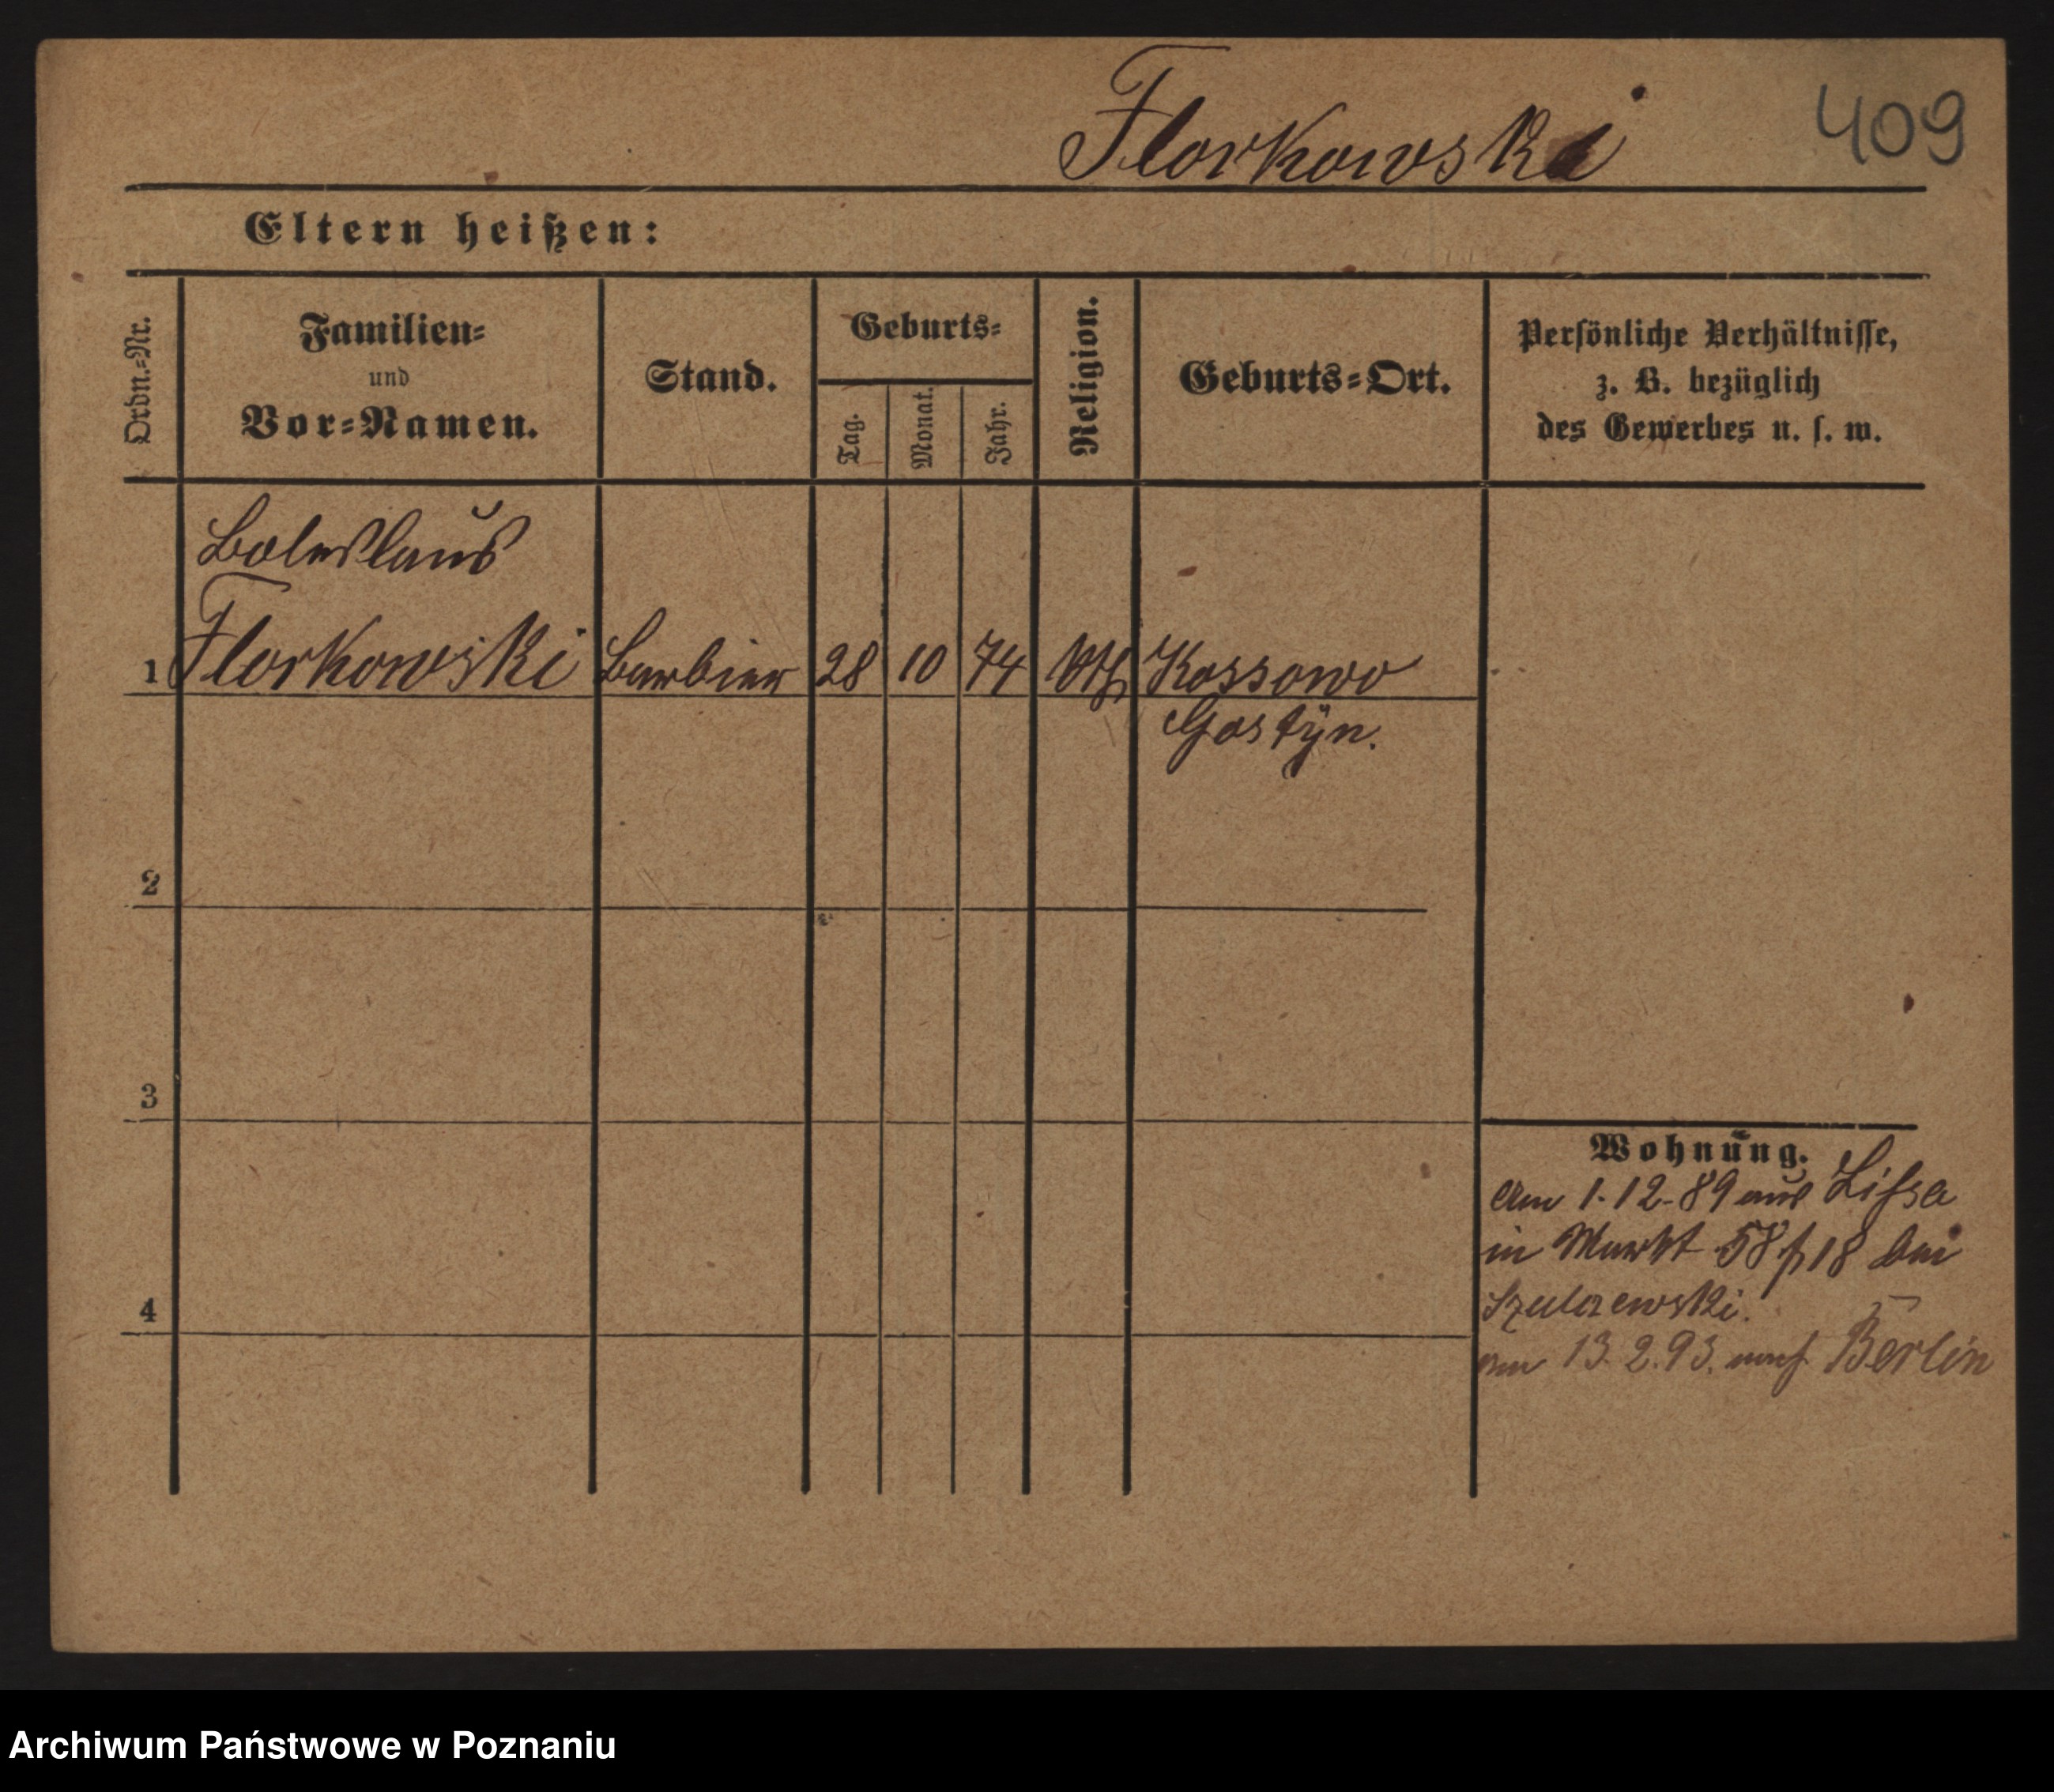 Florkowski
409
Eltern heißen:
Ordn.-Nr.
Familien-
und
Vor-Namen.
Stand.
Geburts-
Tag.
Monat.
Jahr.
Religion.
Geburts-Ort.
Persönliche Verhältnisse,
z. B. bezüglich
des Gewerbes u. s. w.
Boleslaus
1 Florkowski Barbier 28 10 74 Kossowo
Gostyn.
2
3
4
Wohnung.
Am 1.12.89 aus Lissa
in Markt 58 18 bei
Szulczewski.
am 13.2.93. nach Berlin
Archiwum Państwowe w Poznaniu